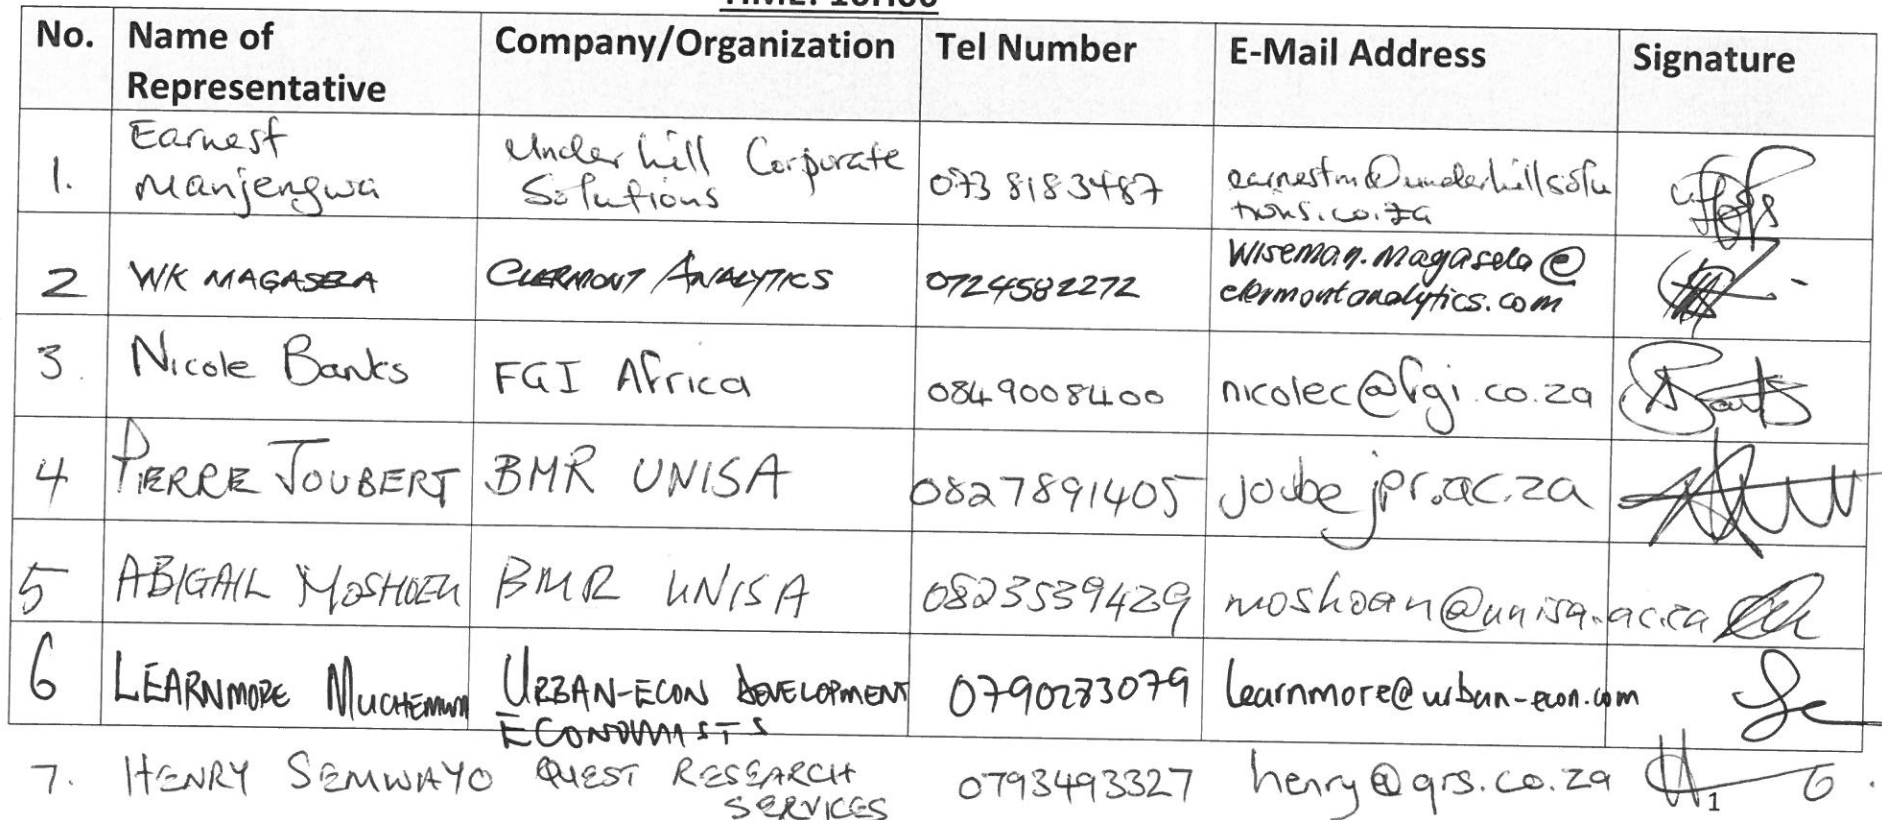 No. Name of Representative Company/Organization Tel Number E-Mail Address Signature
1. Earnest Manjengwa Underhill Corporate Solutions 073 8183487 earnestm@underhillsolutions.co.za
2 WK MAGASELA CLERMONT ANALYTICS 0724582272 Wiseman.Magasela@clermontanalytics.com
3. Nicole Banks FGI Africa 0849008400 nicolec@fgi.co.za
4 PIERRE JOUBERT BMR UNISA 0827891405 joubejpr.ac.za
5 ABIGAIL BMR UNISA 0823539429 moshoan@unisa.ac.za
6 LEARNMORE URBAN-ECON DEVELOPMENT ECONOMISTS 0790283079 learnmore@urban-econ.com
7. HENRY SEMWAYO QUEST RESEARCH SERVICES 0793493327 henry@qrs.co.za
1